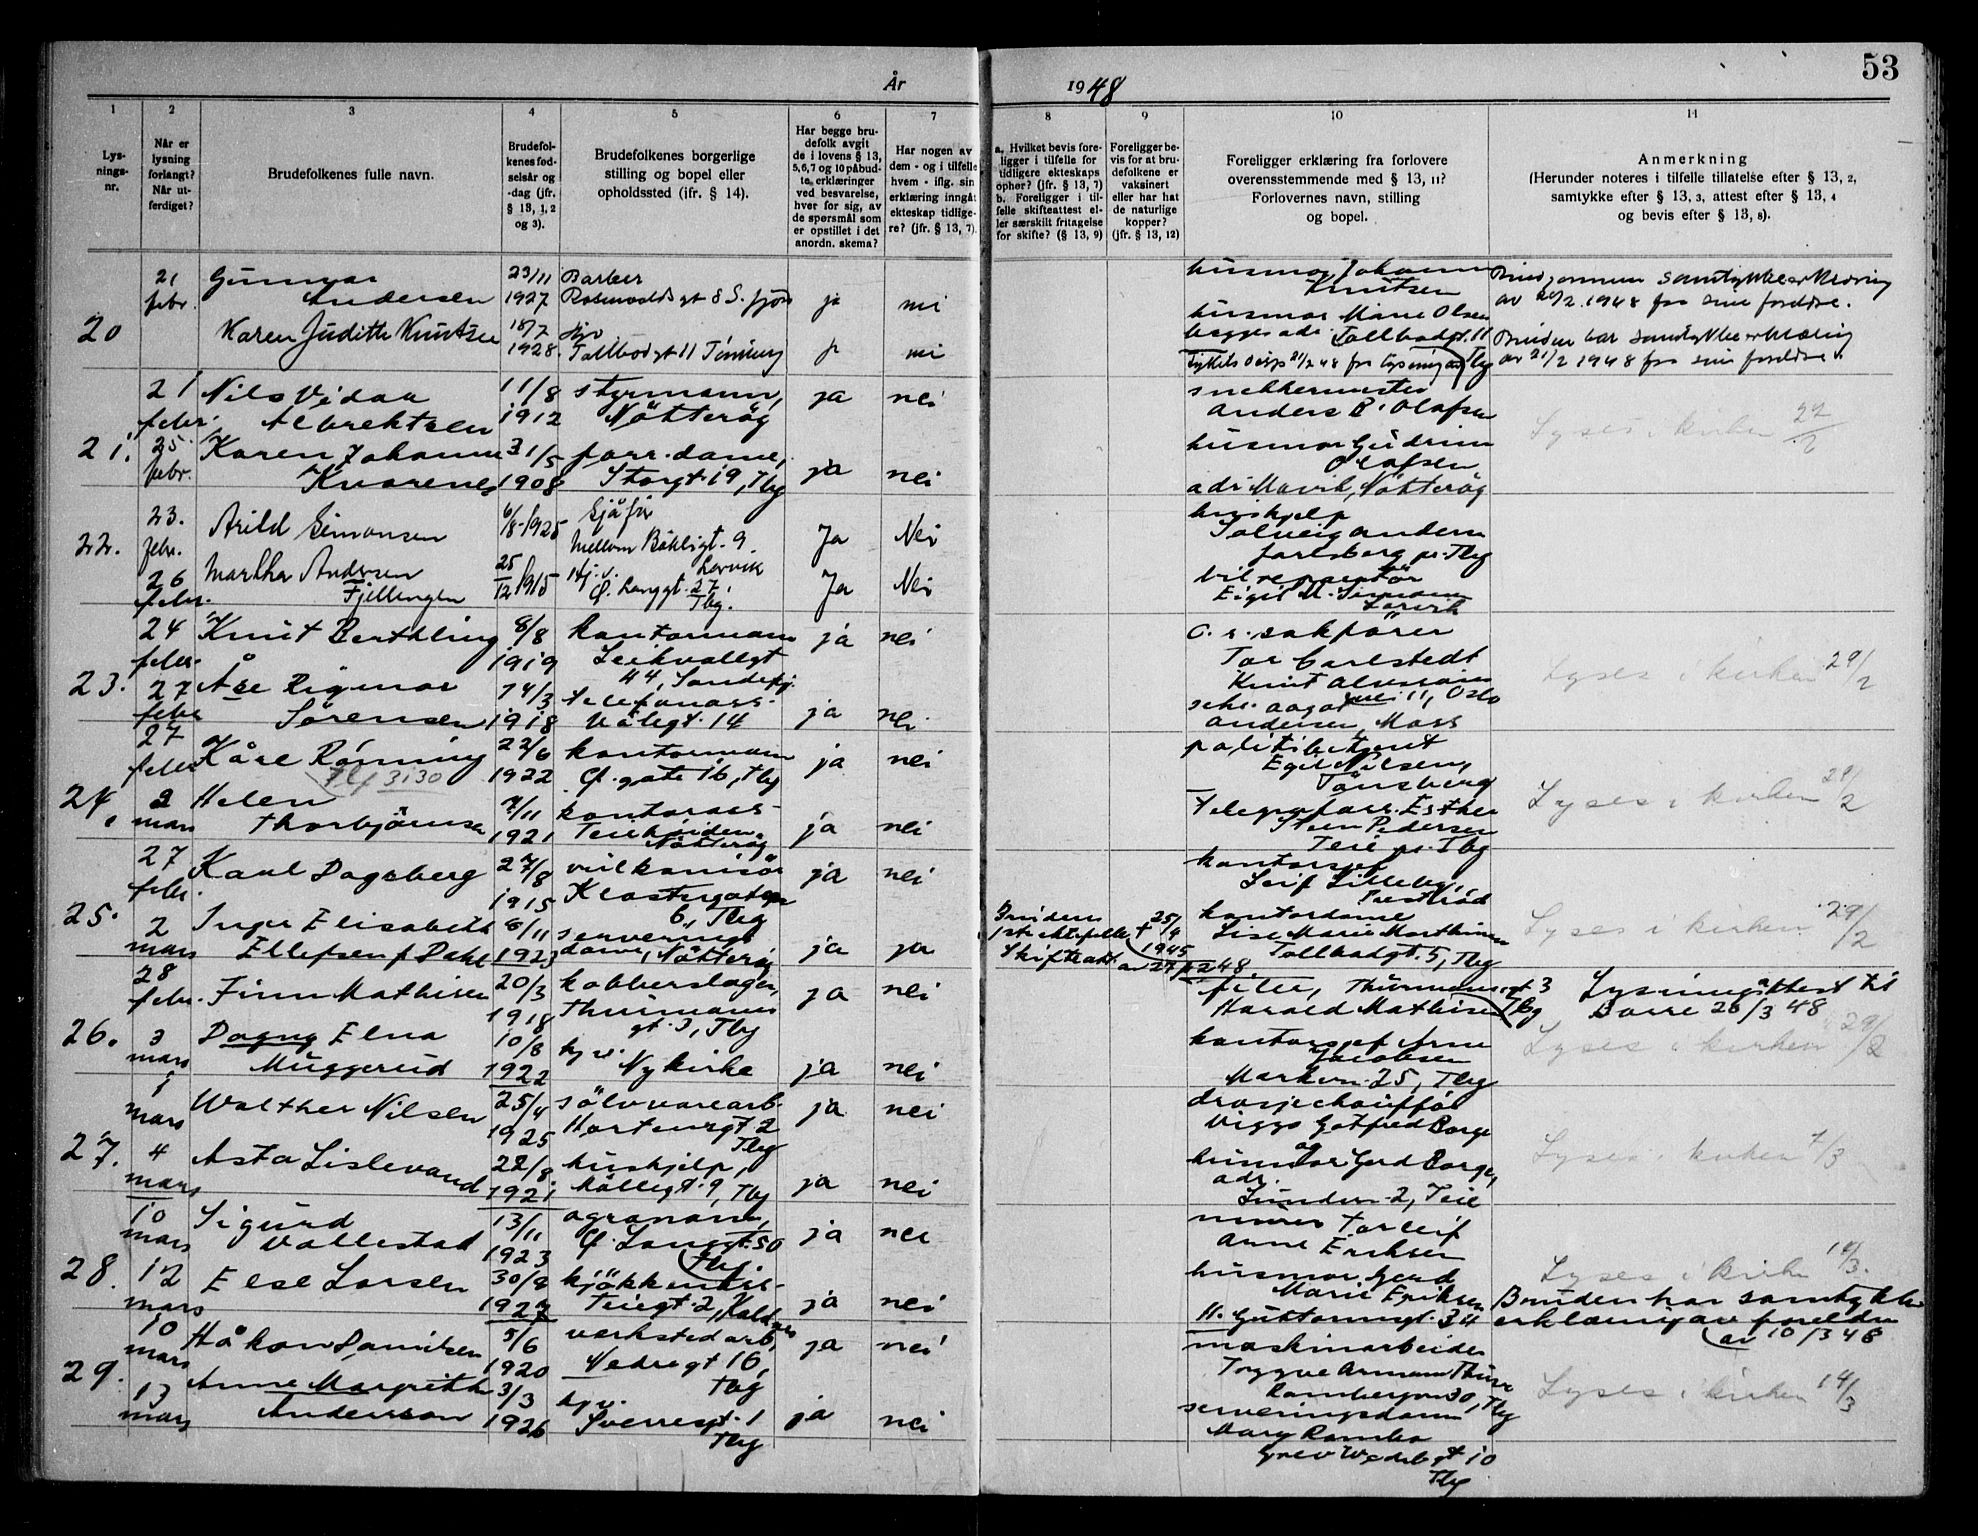 År 1948
53
1 2 3 4 5 6 7 8 9 10 11
Lys-
nings-
nr.
Når er
lysning
forlangt?
Når ut-
ferdiget?
Brudefolkenes fulle navn.
Brudefol-
kenes fød-
selsår og
-dag (jfr.
§ 13, 1, 2
og 3).
Brudefolkenes borgerlige
stilling og bopel eller
opholdssted (ifr. § 14).
Har begge bru-
defolk avgit
de i lovens § 13,
5,6,7 og 10 påbud-
te erklæringer
ved besvarelse,
hver for sig, av
de spørsmål som
er opstillet i det
anordn. skema?
Har nogen av
dem - og i tilfelle
hvem - iflg. sin
erklæring inngåt
ekteskap tidlige-
re? (jfr. § 13, 7).
a. Hvilket bevis fore-
ligger i tilfelle for
tidligere ekteskaps
ophør? (jfr. § 13, 7)
b. Foreligger i til-
felle skifteattest el-
ler særskilt fritagelse
for skifte? (§ 13, 9)
Foreligger be-
vis for at bru-
defolkene er
vaksinert
eller har hat
de naturlige
kopper?
(jfr. § 13, 12)
Foreligger erklæring fra forlovere
overensstemmende med § 13, 11?
Forlovernes navn, stilling
og bopel.
Anmerkning
(Herunder noteres i tilfelle tillatelse efter § 13, 2,
samtykke efter § 13, 3, attest efter § 13, 4
og bevis efter § 13, 8).
20
21 febr.
Gunnar
Andersen
23/11
1927
Barber
ja
nei
husmor Johanne
Knutsen
Brudgommen samtykkeerklæring
av 20/2 1948 fra sine foreldre.
Karen Judith Knutsen
18/7
1928
Tollbodgt 11 Tønsberg
ja
nei
husmor Marie Olsen
begges adr. Tollbodgt. 11
Tbg
Bruden har samtykkeerklæring
av 21/2 1948 fra sine foreldre.
21.
21
febr.
Nils Vidar
Albrektsen
11/8
1912
styrmann,
Nötteröy
ja
nei
snekkermester
Anders B. Olafsen
Lyses i kirken 22/2
25
febr.
Karen Johanne
Kvarenes
31/5
1908
forr. dame,
Storgt. 19, Tbg
ja
nei
husmor Gudrun
Olafsen
adr. Mavik, Nötteröy
22.
23.
febr.
Arild Simonsen
6/8-1925
Sjåfør
Mellom Bökligt. 9
Larvik
Ja
Nei
hushjelp
Solveig Andersen
Jarlsberg pr. Tbg
26
febr.
Martha Andersen
Fjellengen
25/12 1915
Hj.v.
Ö. Langgt. 27
Tbg.
Ja
Nei
bilreparatör
Eigil M. Simonsen
Larvik
23.
24
febr.
Knut Berthling
8/8
1919
kontormann
Leikvollgt
44, Sandefj.
ja
nei
o. r. sakförer
Tor Carlstedt
Lyses i kirken 29/2
27
febr
Åse Rigmor
Sörensen
14/3
1918
telefonass.
ja
nei
11, Oslo
Andersen, Moss
24.
27
febr
Kåre Rönning
Tlf 3130
22/6
1922
kontormann
Ö. gate 16, Tbg
ja
nei
politibetjent
Egil Nilsen,
Tönsberg
Lyses i kirken 29/2
2
mars
Helen
Thorbjörnsen
7/11
1921
kontorass
Teiehöiden,
Nötteröy
ja
nei
Telegrafass. Esther
Steen Pedersen
Teie pr. Tbg
25.
27
febr.
Karl Dagsberg
27/8
1915
Klostergaten
6, Tbg
ja
nei
kontorsjef
Leif Lilleby,
Lyses i kirken 29/2
2
mars
Inger Elisabeth
Ellefsen f. Dahl
8/11
1923
serverings
dame, Nötteröy
ja
ja
Brudens
1ste ektefelle † 25/4
1945
Skifteatt. av 27/2 48
kontordame
Lise Marie Marthinsen
Tollbodgt. 5, Tbg
26.
28
febr.
Finn Mathisen
20/3
1918
kobberslager,
Thurmanns
gt. 3, Tbg
ja
nei
filer, Thurmannsgt 3
Harald Mathisen Tbg
Lysningsattest til
Borre 26/3 48
3
mars
Dagny Elna
Muggerud
10/8
1922
hj.v.
Nykirke
ja
nei
kontorsjef Arne
Jacobsen
Markvn. 25, Tbg
Lyses i kirken 29/2
27.
1
mars
Walther Nilsen
25/4
1925
sölvvarearb.
Hortensgt 2
Tbg
ja
nei
drosjechaufför
Viggo Gotfred Borge
og
Lyses i kirken 7/3
4
mars
Asta Lislevand
22/8
1921
hushjelp,
Möllegt. 9, Tbg
ja
nei
husmor Gerd Borge,
adr.
2, Teie
28.
10
mars
Sigurd
Vallestad
13/11
1923
agronom,
Ö. Langgt. 50
Tbg.
ja
nei
murer Torleif
Arne Eriksen
Lyses i kirken 14/3.
12
mars
Else Larsen
30/9
1927
Teiegt. 2, Kaldnes
ja
nei
husmor Gerd
Marie Eriksen
H. Guttormsgt. 34
Bruden har samtykke
erklæring av foreldre
av 10/3 48
29.
10
mars
Håkon Danielsen
5/6
1920
verkstedarb,
Nedregt 16,
Tbg
ja
nei
maskinarbeider
Tryggve Armann Thure
Rambergvn 30, Tbg
Lyses i kirken 14/3
13
mars
Anne Margrethe
Anderson
3/3
1926
hj.v.
Sverresgt. 1
Tbg
ja
nei
serveringsdame
Mary Rambo
Grev Wedelsgt 10
Tbg